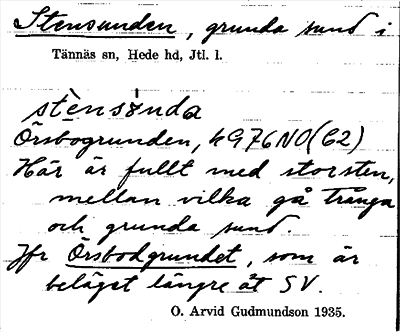 Stensunden, grunda sund i
Tännäs sn, Hede hd, Jtl. l.
stènsènda
Örsbogrunden, kG76NO(C2)
Här är fullt med storsten,
mellan vilka gå trånga
och grunda sund.
Jfr Örsbodgrundet, som är
beläget längre åt SV.
O. Arvid Gudmundson 1935.